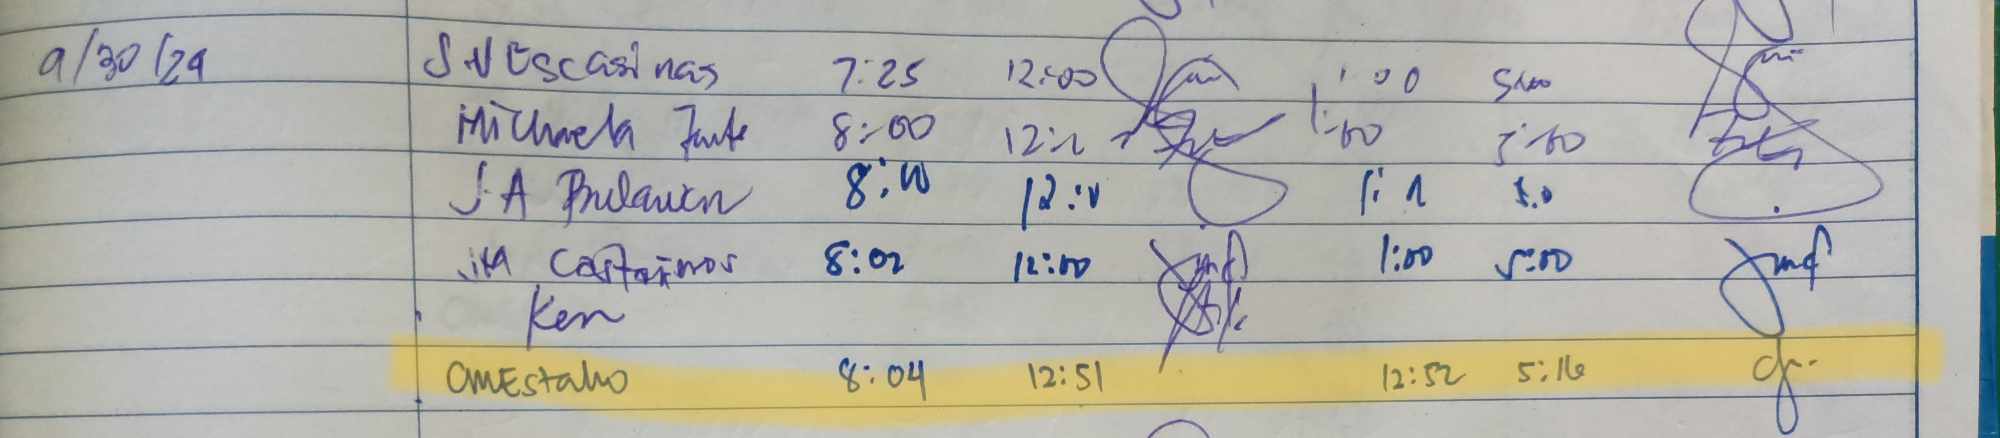 9/30/24 J.N Escasinas 7:25 12:00 1:00 5:00
Michaela 8:00 12:1 1:00 5:00
J.A Bulauen 8:10 12:1 1:1 5:0
Castaños 8:02 12:00 1:00 5:00
Ken
CMEstabo 8:04 12:51 12:52 5:16